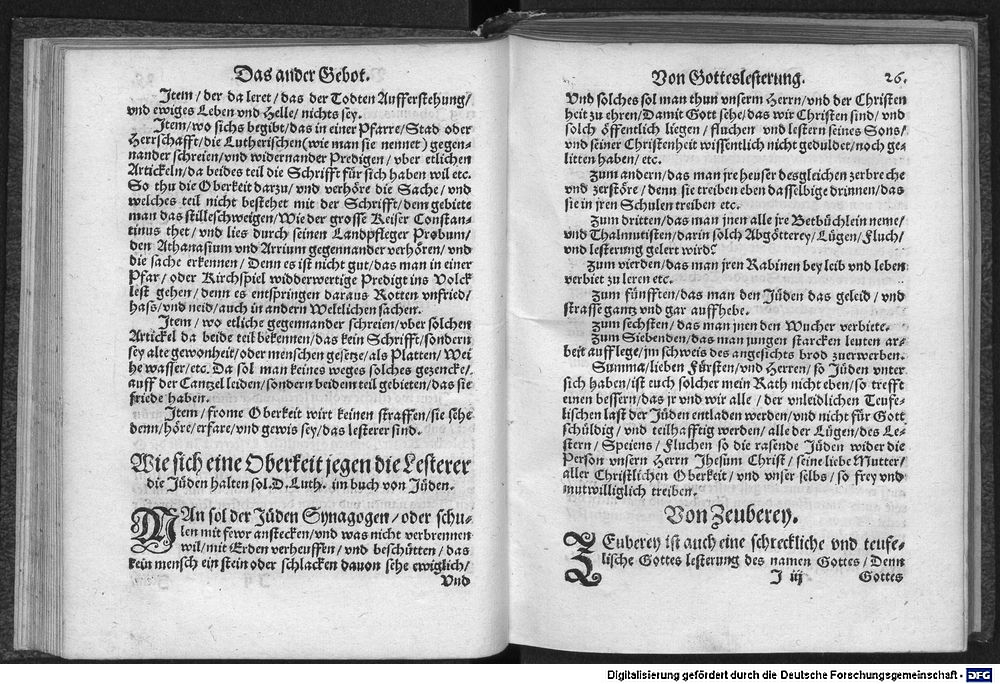 Das ander Gebot.
Item / der da leret / das der Todten Aufferstehung/
vnd ewiges Leben vnd Helle / nichts sey.
Item/ wo sichs begibt/das in einer Pfarre/Stad oder
Herrschafft/die Lutherischen(wie man sie nennet) gegen-
nander schreien/vnd widernander Predigen / vber etlichen
Artickeln/da beides teil die Schrifft für sich haben wil etc.
So thu die Oberkeit darzu/ vnd verhöre die Sache / vnd
welches teil nicht bestehet mit der Schrifft/ dem gebiete
man das stilleschweigen/Wie der grosse Keiser Constan-
tinus thet/ vnd lies durch seinen Landpfleger Probum/
den Athanasium vnd Arrium gegennander verhören / vnd
die sache erkennen / Denn es ist nicht gut/das man in einer
Pfar/ oder Kirchspiel widderwertige Predigt ins Volck
lest gehen/ denn es entspringen daraus Rotten vnfried/
hass/ vnd neid/ auch in andern Weltlichen sachen.
Item / wo etliche gegennander schreien/ vber solchen
Artickel da beide teil bekennen/das kein Schrifft/sondern
sey alte gewonheit/oder menschen gesetze/als Platten/ Wei
he wasser/etc. Da sol man keines weges solches gezencke/
auff der Cantzel leiden/sondern beidem teil gebieten/das sie
friede haben.
Item / frome Oberkeit wirt keinen straffen/sie sehe
denn/höre/erfare/vnd gewis sey/das lesterer sind.
Wie sich eine Oberkeit jegen die Lesterer
die Jüden halten sol. D. Luth. im buch von Jüden.
MAn sol der Jüden Synagogen / oder schu-
len mit fewr anstecken/vnd was nicht verbrennen
wil/mit Erden verheuffen / vnd beschütten / das
kein mensch ein stein oder schlacken dauon sehe ewiglich/
Vnd
Von Gotteslesterung. 26.
Vnd solches sol man thun vnserm Herrn/vnd der Christen
heit zu ehren/Damit Gott sehe/das wir Christen sind/ vnd
solch öffentlich liegen / fluchen vnd lestern seines Sons/
vnd seiner Christenheit wissentlich nicht geduldet/noch ge-
litten haben/ etc.
Zum andern/das man jre heuser desgleichen zerbreche
vnd zerstöre / denn sie treiben eben dasselbige drinnen/das
sie in jren Schulen treiben etc.
Zum dritten/das man jnen alle jre Betbüchlein neme/
vnd Thalmutisten/darin solch Abgötterey/ Lügen/ Fluch/
vnd lesterung gelert wird?
Zum vierden/das man jren Rabinen bey leib vnd leben
verbiet zu leren etc.
Zum fünfften/das man den Jüden das geleid / vnd
strasse gantz vnd gar auffhebe.
Zum sechsten / das man jnen den Wucher verbiete.
Zum Siebenden/das man jungen starcken leuten ar-
beit aufflege/jm schweis des angesichts brod zuerwerben.
Summa/lieben Fürsten/vnd Herren/ so Jüden vnter
sich haben/ist euch solcher mein Rath nicht eben/ so trefft
einen bessern/das jr vnd wir alle / der vnleidlichen Teufe-
lischen last der Jüden entladen werden/vnd nicht für Gott
schüldig / vnd teilhafftig werden/ alle der Lügen/des Le-
stern / Speiens / Fluchen so die rasende Jüden wider die
Person vnsern Herrn Jhesum Christ / seine liebe Mutter/
aller Christlichen Oberkeit/ vnd vnser selbs / so frey vnd
mutwilliglich treiben.
Von Zeuberey.
ZEuberey ist auch eine schreckliche vnd teufe-
lische Gottes lesterung des namen Gottes / Denn
J iij Gottes
Digitalisierung gefördert durch die Deutsche Forschungsgemeinschaft - DFG